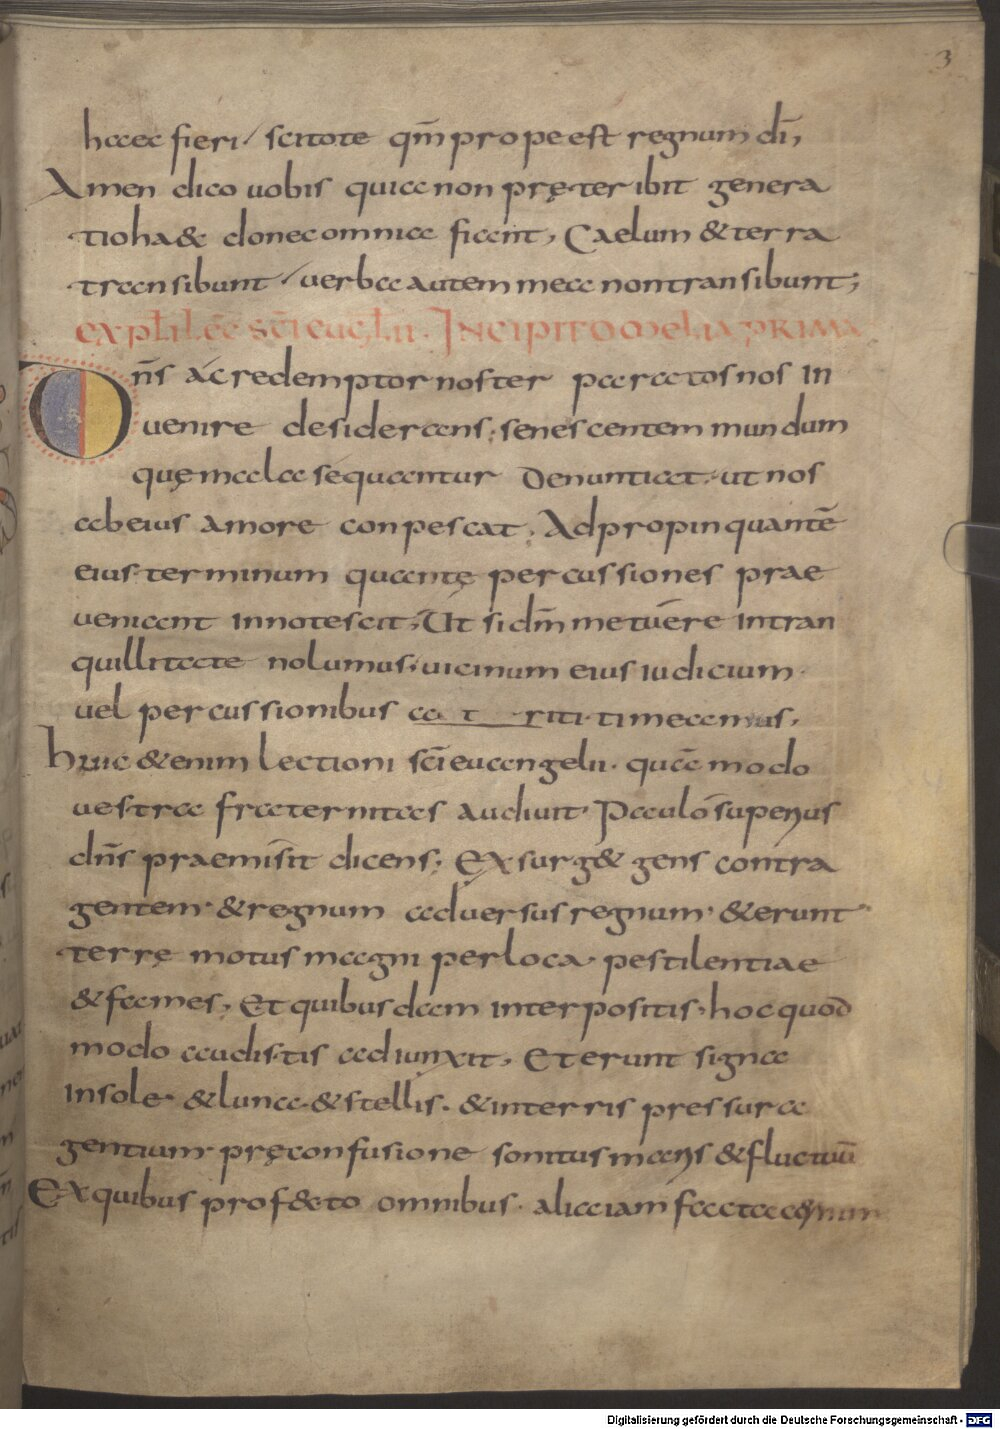 3
haec fieri / scitote qm̄ prope est regnum dī,
Amen dico uobis quia non pręteribit genera
tio ha& donec omnia fiant, Caelum & terra
transibunt / uerba autem mea non transibunt;
INCIPIT OMELIA PRIMA
Dn̄s ac redemptor noster paratos nos in
uenire desiderans; senescentem mundum
quę mala sequantur denuntiat, ut nos
ab eius amore conpescat, Adpropinquantē
eius terminum quantę percussiones prae
ueniant innotescit, Ut si dm̄ metuere in tran
quillitate nolumus, uicinum eius iudicium.
uel percussionibus timeamus,
huic & enim lectioni sc̄i euangelii. quā modo
uestra fraternitas audiuit, Paulo superius
dn̄s praemisit dicens; Exsurg& gens contra
gentem. & regnum aduersus regnum. & erunt
terrę motus magni per loca. pestilentiae
& fames, Et quibusdam interpositis, hoc quod
modo audistis adiunxit, Et erunt signa
in sole & luna & stellis. & in terris pressura
gentium. prę confusione sonitus maris & fluctuū
Ex quibus prof&to omnibus. alia iam facta
Digitalisierung gefördert durch die Deutsche Forschungsgemeinschaft - DFG